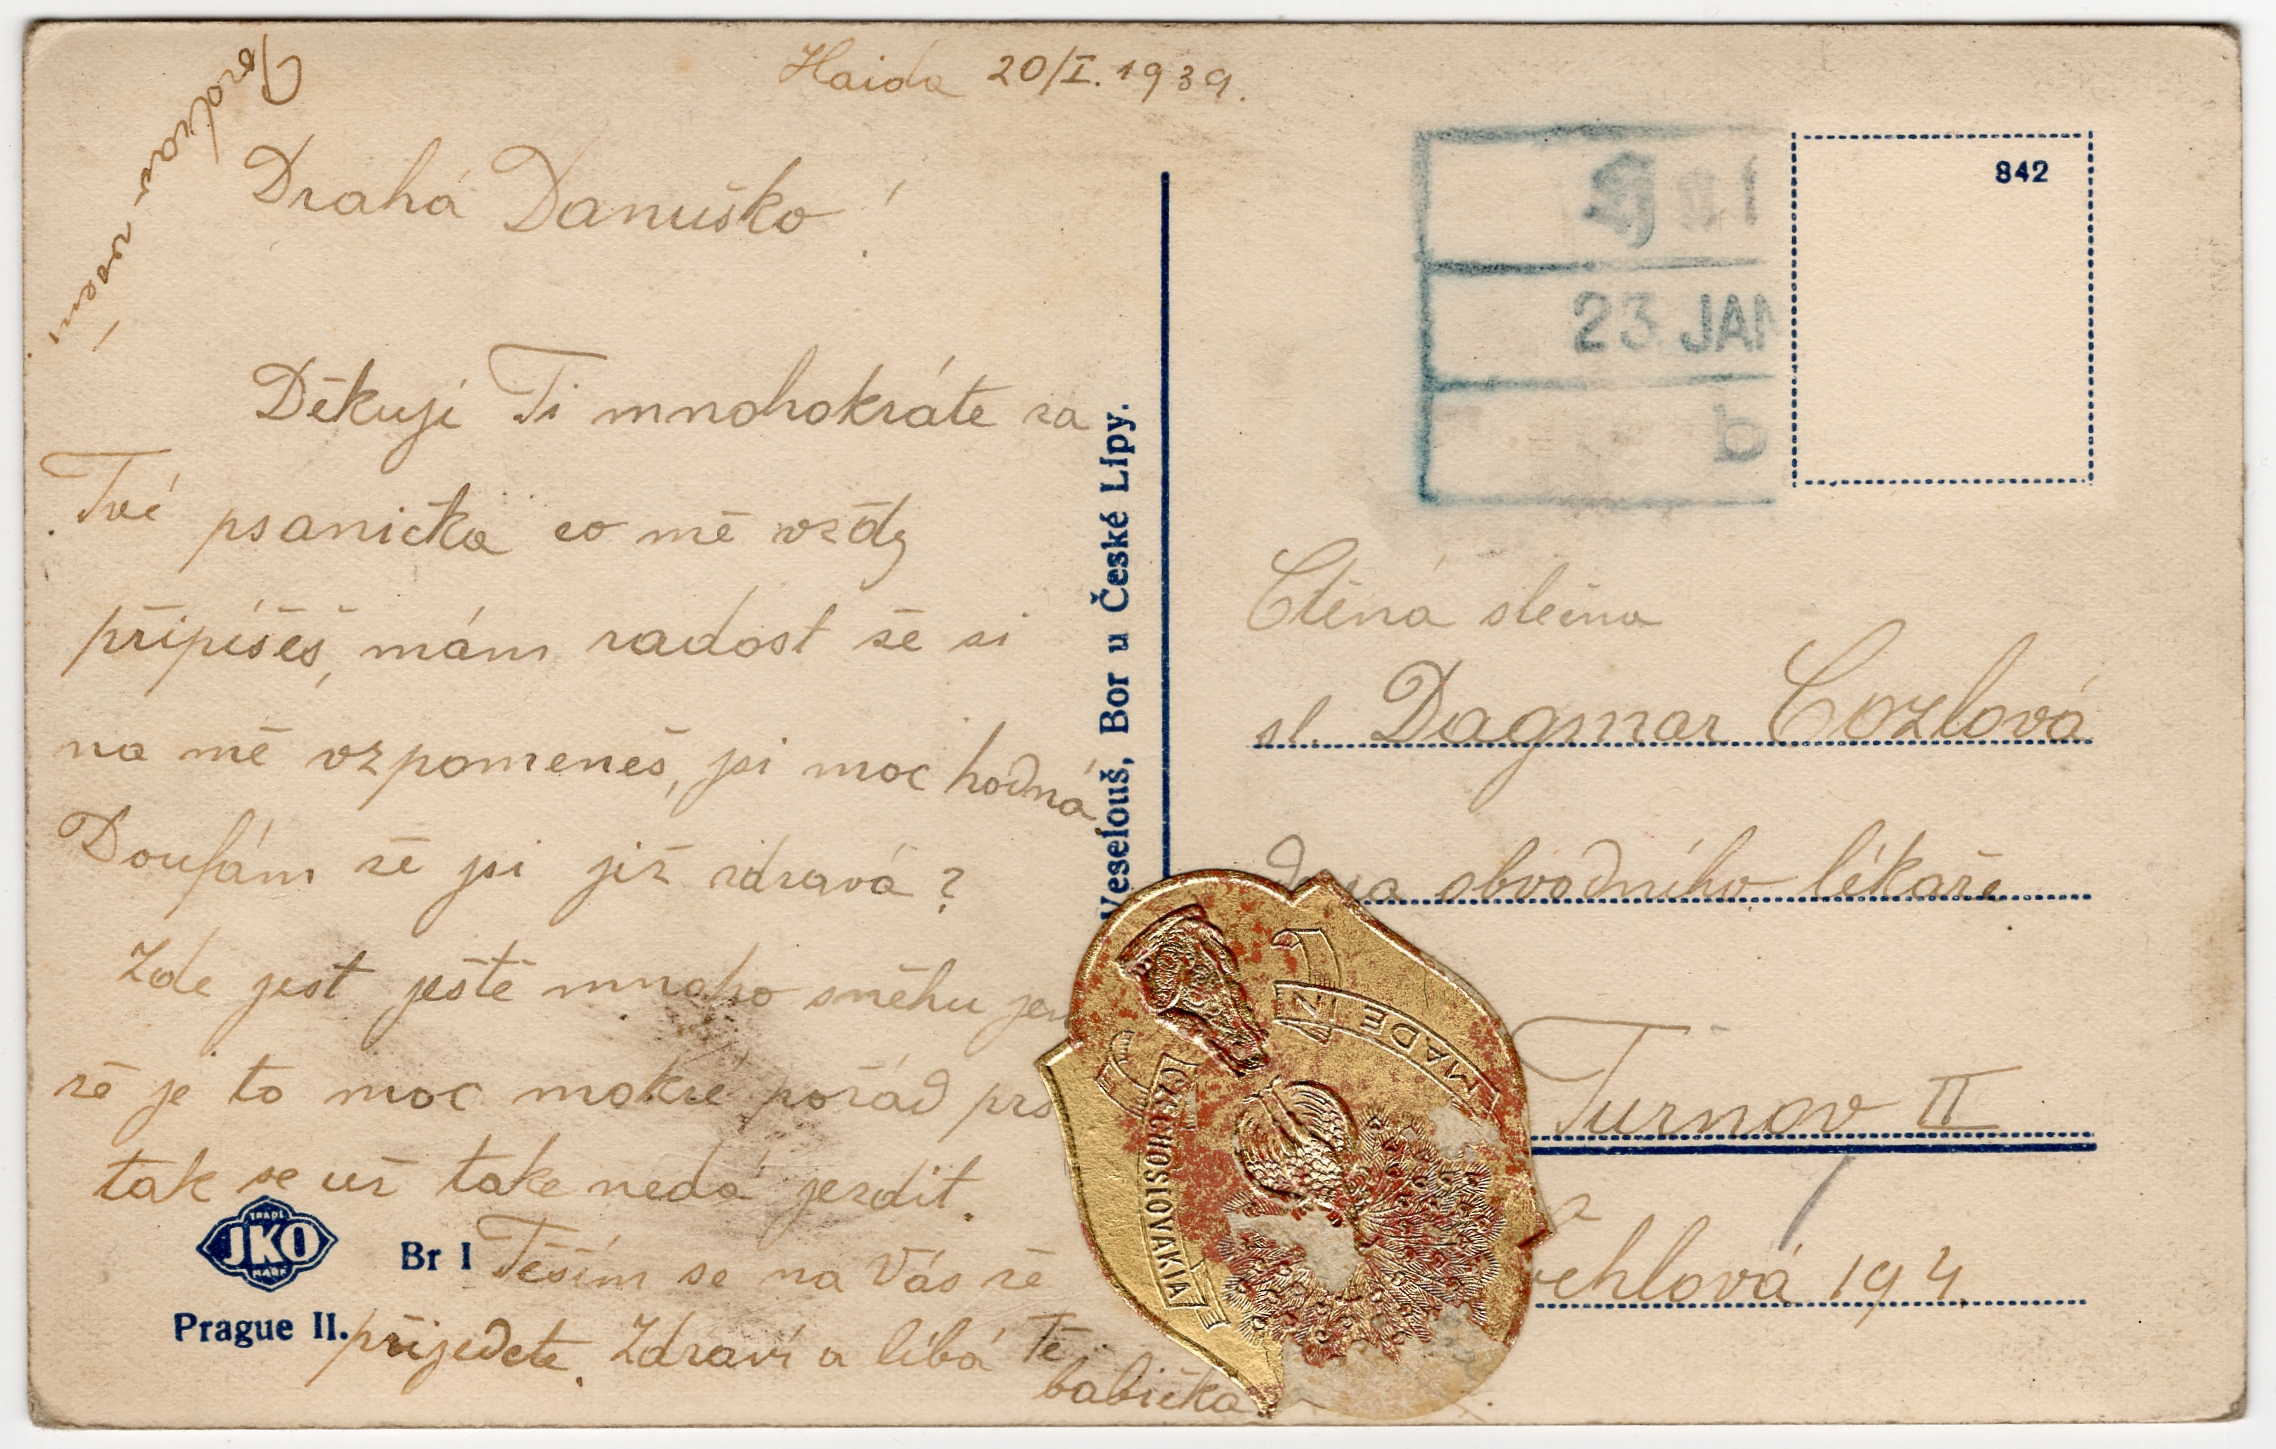 Haida 20/I. 1939.
Pozdrav všem
Drahá Danuško!
Děkuji Ti mnohokráte za
Tvé psaníčka co mě vždy
připíšeš, mám radost že si
na mě vzpomeneš, jsi moc hodná
Doufám že jsi již zdravá?
Zde jest ještě mnoho sněhu jen
že je to moc mokré pořád prš
tak se už take nedá jezdit.
Těším se na Vás že
přijedete. Zdraví a líbá Tě
babička.
TRADE
JKO
MARK
Br I
Prague II.
Veselouš, Bor u České Lípy.
842
Hai
23 JAN
b
Ctěná slečna
sl. Dagmar Cozlová
obvodního lékaře
Turnov II
ehlová 194.
MADE IN
CZECHOSLOVAKIA